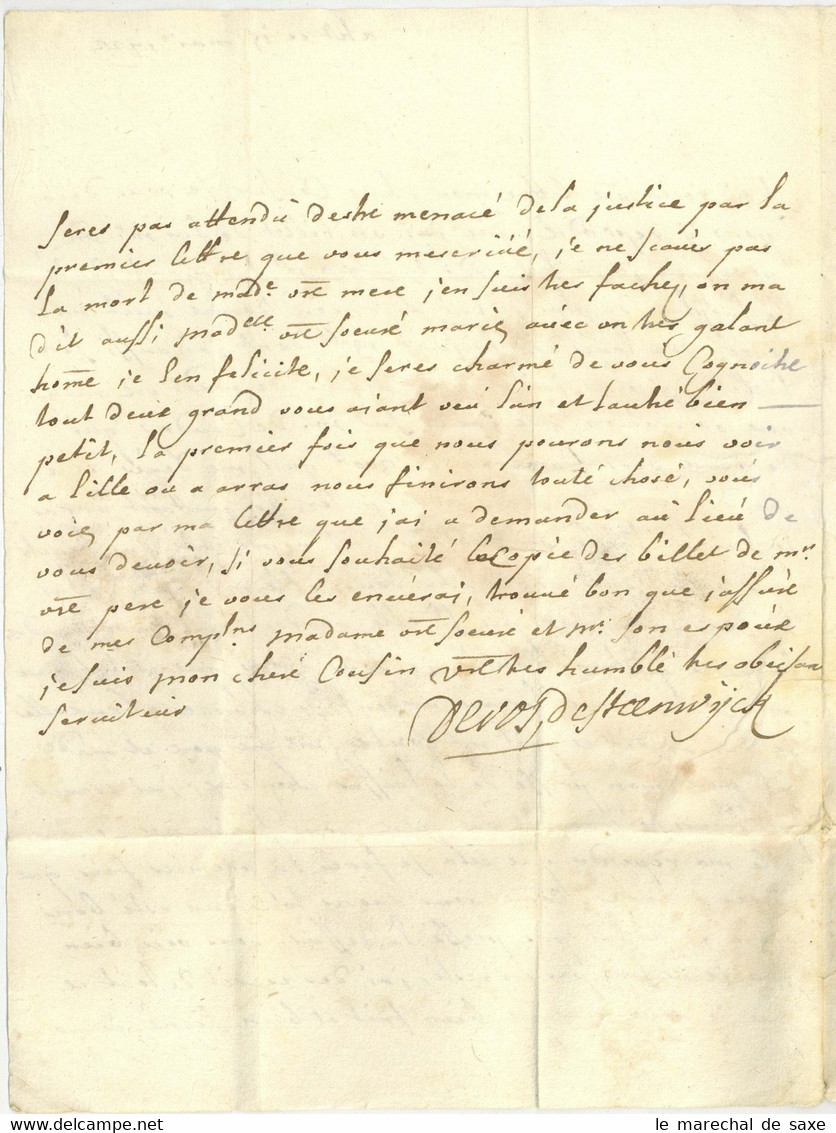 seres pas attendu destre menacé de la justice par la
premier lettre que vous mescrivé, je ne scavés pas
la mort de made vre mere j'en suis tres fachez, on ma
dit aussi madelle vre soeuré mariez avéc un tres galant
home je l'en felicite, je seres charmé de vous Cognoitre
tout deux grand vous aiant veu l'un et lautré bien
petit, la premier fois que nous pourons nous voir
a lille ou a arras nous finirons touté chosé, vous
voiez par ma lettre que j'ai a demander au lieu de
vous devoir, si vous souhaité le Copie des billet de mr
vre pere je vous les enverai, trouvé bon que j'assuré
de mes Complns madame vre soeuré et mr son espoux
je suis mon cheré Cousin vre tres humblé tres obeisan
serviteur
Devos, de steenwÿck
DELCAMPE
le marechal de saxe